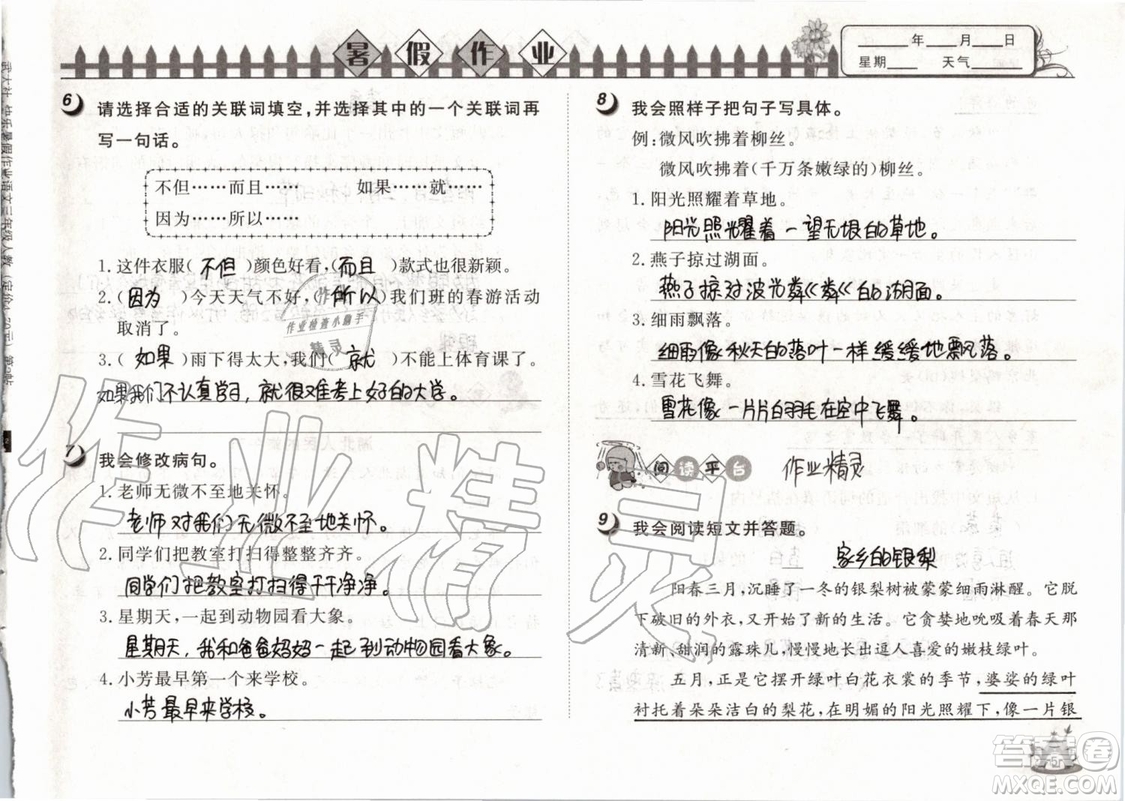 暑假作业
____年____月____日
星期____ 天气____
6 请选择合适的关联词填空,并选择其中的一个关联词再
写一句话。
不但……而且…… 如果……就……
因为……所以……
1.这件衣服(不但)颜色好看,(而且)款式也很新颖。
2.(因为)今天天气不好,(所以)我们班的春游活动
取消了。
3.(如果)雨下得太大,我们(就)不能上体育课了。
如果我们不认真学习,就很难考上好的大学。
7 我会修改病句。
1.老师无微不至地关怀。
老师对我们无微不至地关怀。
2.同学们把教室打扫得整整齐齐。
同学们把教室打扫得干干净净。
3.星期天,一起到动物园看大象。
星期天,我和爸爸妈妈一起到动物园看大象。
4.小芳最早第一个来学校。
小芳最早来学校。
8 我会照样子把句子写具体。
例:微风吹拂着柳丝。
微风吹拂着(千万条嫩绿的)柳丝。
1.阳光照耀着草地。
阳光照耀着一望无垠的草地。
2.燕子掠过湖面。
燕子掠过波光粼粼的湖面。
3.细雨飘落。
细雨像秋天的落叶一样缓缓地飘落。
4.雪花飞舞。
雪花像一片片白羽毛在空中飞舞。
阅读平台
作业精灵
9 我会阅读短文并答题。
家乡的银梨
阳春三月,沉睡了一冬的银梨树被蒙蒙细雨淋醒。它脱
下破旧的外衣,又开始了新的生活。它贪婪地吮吸着春天那
清新、甜润的露珠儿,慢慢地长出逗人喜爱的嫩枝绿叶。
五月,正是它摆开绿叶白花衣裳的季节,婆婆的绿叶
衬托着朵朵洁白的梨花,在明媚的阳光照耀下,像一片银
作业检查小助手
精灵
作业精灵
答案圈
MXQE.COM